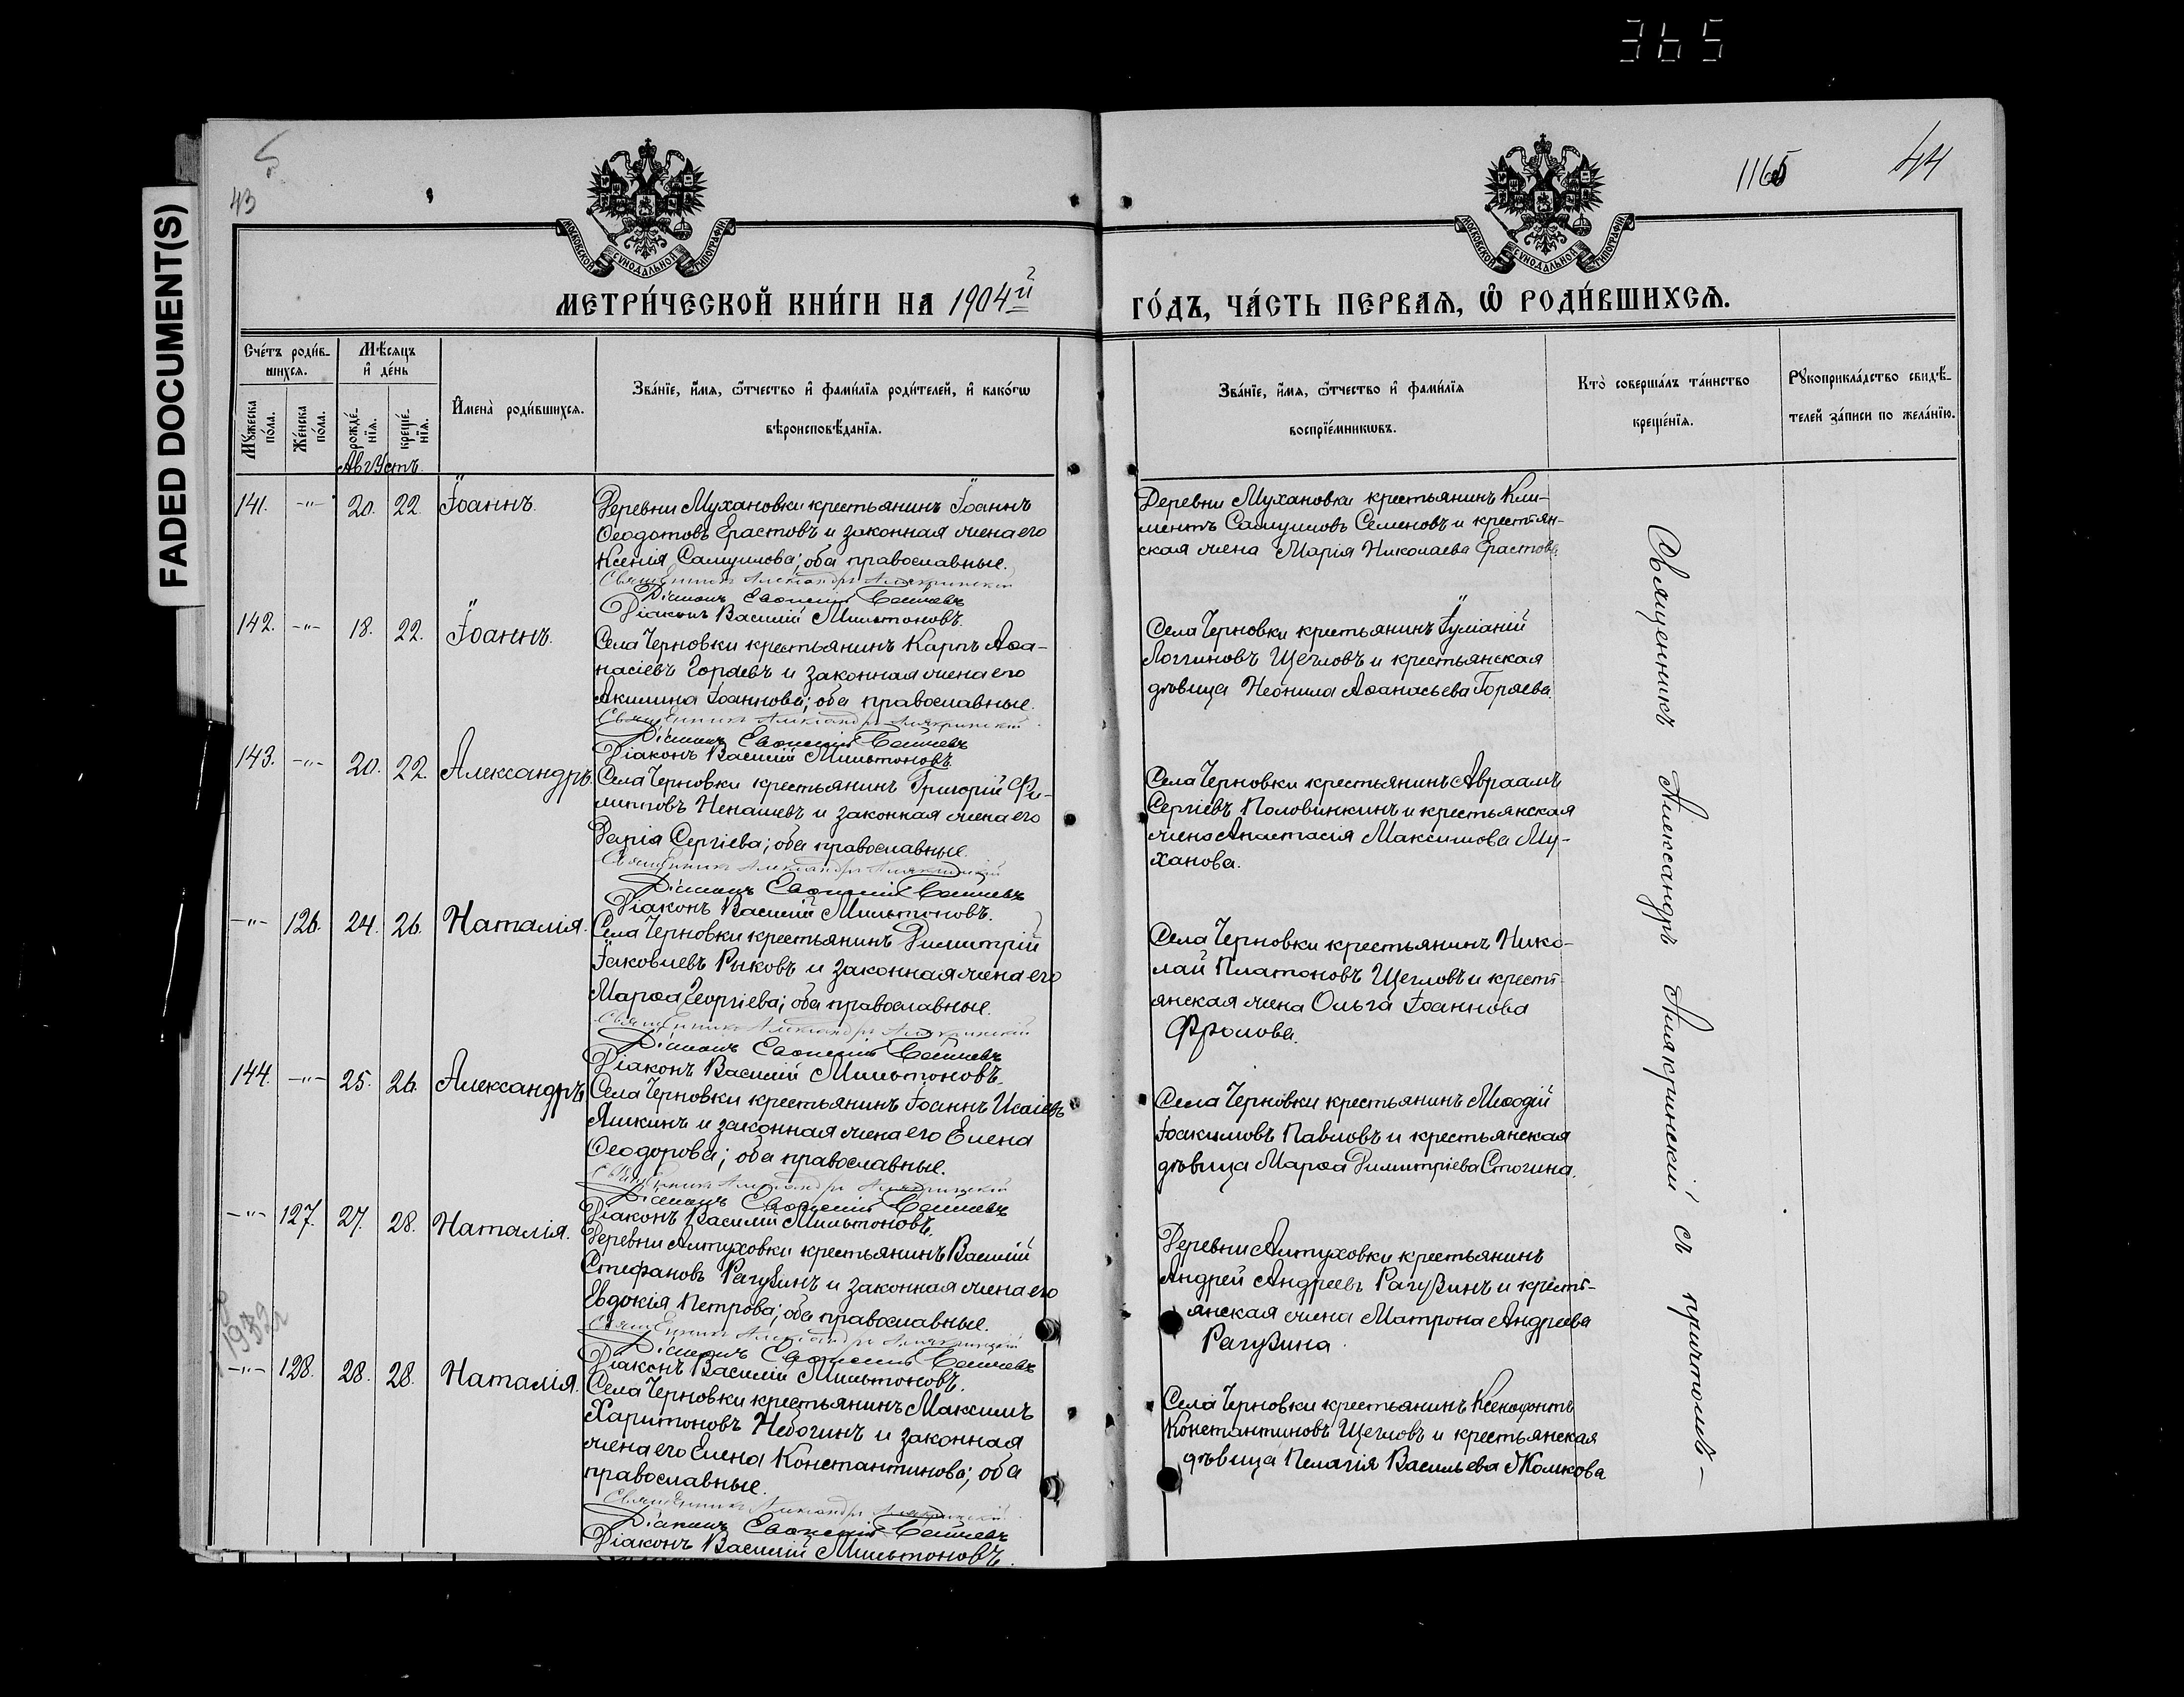 365
FADED DOCUMENT(S)
43
1165
44
МОСКОВСКОЙ СѴНОДАЛЬНОЙ ТИПОГРАФІИ
МОСКОВСКОЙ СѴНОДАЛЬНОЙ ТИПОГРАФІИ
МЕТРИ́ЧЕСКОЙ КНИ́ГИ НА 1904й
ГО́ДЪ, ЧА́СТЬ ПЕРВАѦ, Ѡ РОДИ́ВШИХСѦ.
Сче́тъ роди́в-
шихсѧ.
Мѣсѧцъ
и де́нь
Мꙋжеска по́ла.
Же́нска по́ла.
рожде́-
нїѧ.
креще́-
нїѧ.
И҆мена̀ роди́вшихсѧ.
Зва́нїе, и҆́мѧ, ѻ҆́тчество и҆ фами́лїѧ роди́телей, и҆ како́гѡ
вѣроисповѣ́данїѧ.
Зва́нїе, и҆́мѧ, ѻ҆́тчество и҆ фами́лїѧ
воспрїе́мникѡвъ.
Кто̀ соверша́лъ та́инство
креще́нїѧ.
Рꙋкоприкла́дство свидѣ́-
телей за́писи по жела́нїю.
Августъ.
141. -"- 20. 22. Іоаннъ.
Деревни Мухановки крестьянинъ Іоаннъ
Ѳеодотовъ Ерастовъ и законная жена его
Ксенія Самуилова; оба православные.
Священникъ Александръ Алякринскій
Діаконъ
Діаконъ Василій Мильтоновъ.
Деревни Мухановки крестьянинъ Кли-
ментъ Самуиловъ Семеновъ и крестьян-
ская жена Марія Николаева Ерастова.
142. -"- 18. 22. Іоаннъ.
Села Черновки крестьянинъ Карпъ Аѳа-
насіевъ Горяевъ и законная жена его
Акилина Іоаннова; оба православные.
Священникъ Александръ Алякринскій
Діаконъ
Діаконъ Василій Мильтоновъ.
Села Черновки крестьянинъ Іуліаній
Логгиновъ Щегловъ и крестьянская
дѣвица Неонила Аѳанасьева Горяева.
143. -"- 20. 22. Александръ.
Села Черновки крестьянинъ Григорій Фи-
липповъ Ненашевъ и законная жена его
Дарія Сергіева; оба православные.
Священникъ Александръ Алякринскій
Діаконъ
Діаконъ Василій Мильтоновъ.
Села Черновки крестьянинъ Авраамъ
Сергіевъ Половинкинъ и крестьянская
жена Анастасія Максимова Му-
ханова.
-"- 126. 24. 26. Наталія.
Села Черновки крестьянинъ Димитрій
Іаковлевъ Рыковъ и законная жена его
Марѳа Георгіева; оба православные.
Священникъ Александръ Алякринскій
Діаконъ
Діаконъ Василій Мильтоновъ.
Села Черновки крестьянинъ Нико-
лай Платоновъ Щегловъ и кресть-
янская жена Ольга Іоаннова
Фролова.
144. -"- 25. 26. Александръ
Села Черновки крестьянинъ Іоаннъ Исаіевъ
Яшкинъ и законная жена его Елена
Ѳеодорова; оба православные.
Священникъ Александръ Алякринскій
Діаконъ
Діаконъ Василій Мильтоновъ.
Села Черновки крестьянинъ Меѳодій
Іоакимовъ Павловъ и крестьянская
дѣвица Марѳа Димитріева Стогина.
-"- 127. 27. 28. Наталія.
Деревни Алтуховки крестьянинъ Василій
Стефановъ Рагузинъ и законная жена его
Евдокія Петрова; оба православные.
Священникъ Александръ Алякринскій
Діаконъ
Діаконъ Василій Мильтоновъ.
Деревни Алтуховки крестьянинъ
Андрей Андреевъ Рагузинъ и кресть-
янская жена Матрона Андреева
Рагузина.
-"- 128. 28. 28. Наталія.
Села Черновки крестьянинъ Максимъ
Харитоновъ Небогинъ и законная
жена его Елена Константинова; оба
православные.
Священникъ Александръ Алякринскій
Діаконъ
Діаконъ Василій Мильтоновъ.
Села Черновки крестьянинъ Ксенофонтъ
Константиновъ Щегловъ и крестьянская
дѣвица Пелагія Васильева Жолкова
Священникъ Александръ Алякринскій съ причтомъ